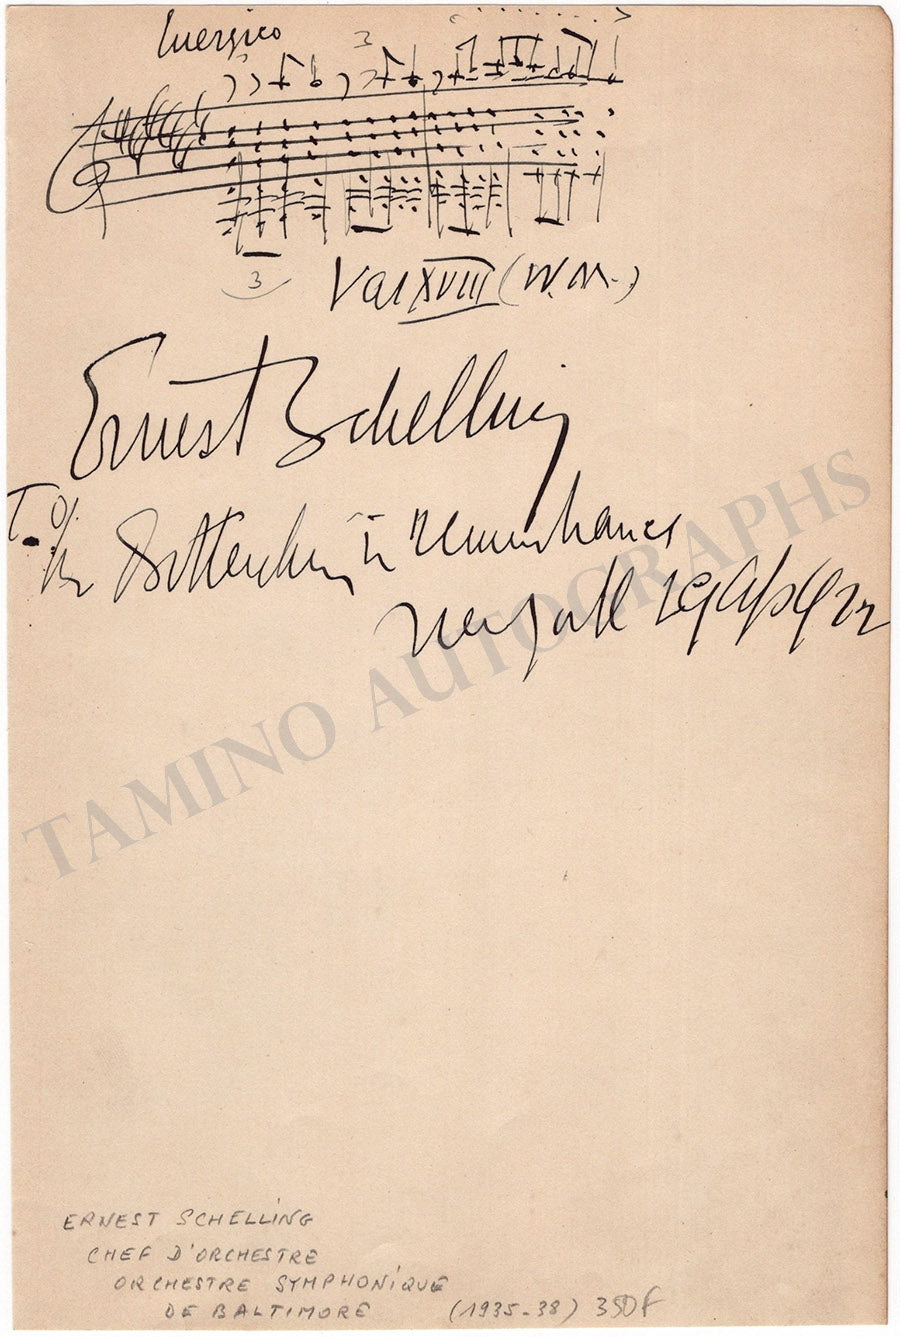 Energico
3
3
Var XVIII (W.M.)
Ernest Schelling
To
in Remembrance
TAMINO AUTOGRAPHS
ERNEST SCHELLING
CHEF D'ORCHESTRE
ORCHESTRE SYMPHONIQUE
DE BALTIMORE (1935-38) 350F